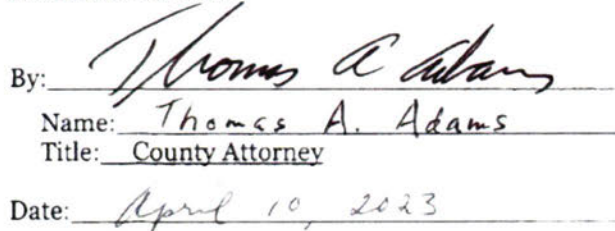 By: Thomas A Adams
Name: Thomas A. Adams
Title: County Attorney
Date: April 10, 2023